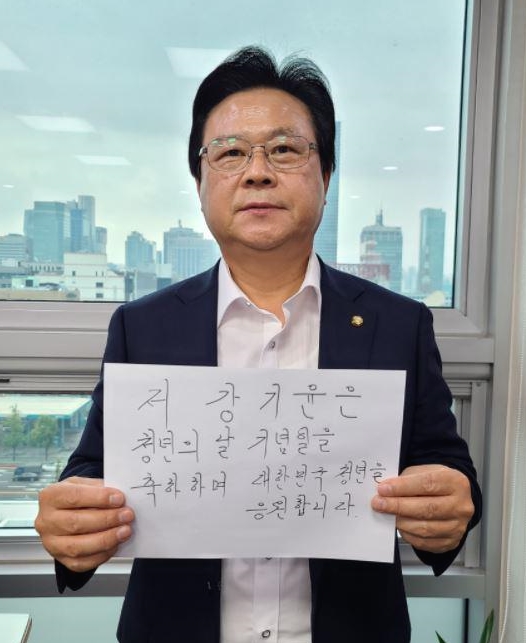 저 강기윤은
청년의 날 기념일을
축하하며 대한민국 청년을
응원합니다.